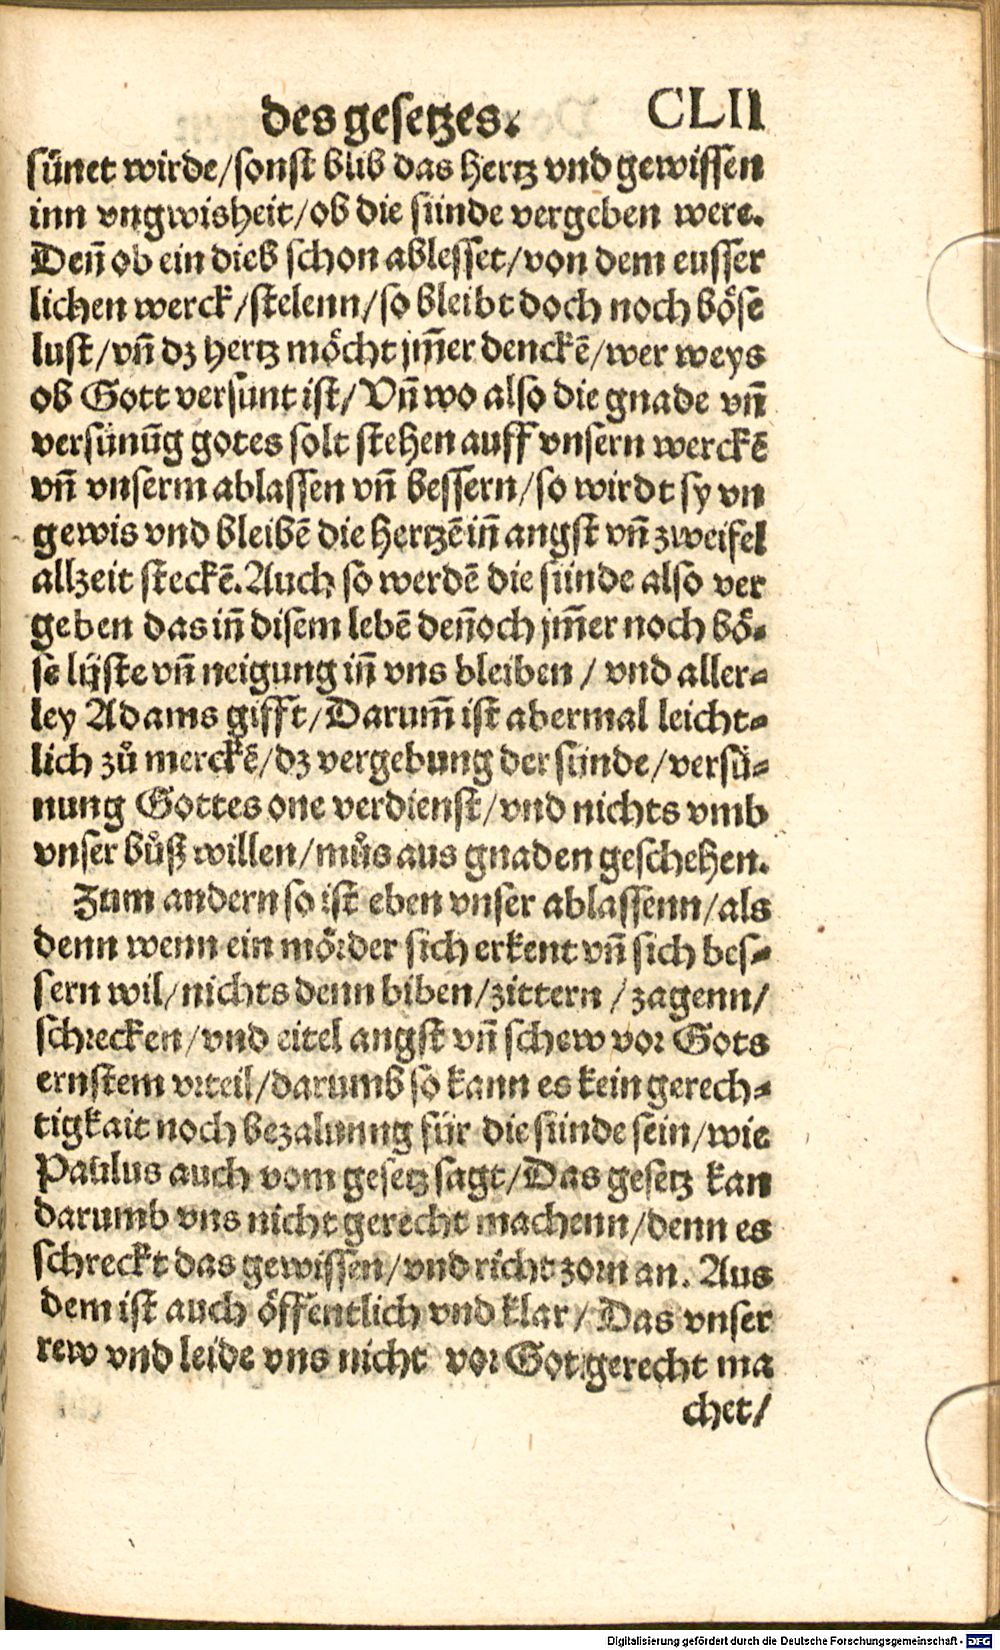 des gesetzes. CLII
sünet wirde/sonst blib das hertz vnd gewissen
inn vngwisheit/ob die sünde vergeben were.
Deñ ob ein dieb schon ablesset/von dem eusser
lichen werck/stelenn/so bleibt doch noch böse
lust/vñ dz hertz möcht jm̃er denckē/wer weys
ob Gott versunt ist/Vñ wo also die gnade vñ
versünūg gotes solt stehen auff vnsern werckē
vñ vnserm ablassen vñ bessern/so wirdt sy vn
gewis vnd bleibē die hertzē iñ angst vñ zweifel
allzeit steckē. Auch so werdē die sünde also ver
geben das iñ disem lebē deñoch jm̃er noch bö-
se lüste vñ neigung iñ vns bleiben / vnd aller-
ley Adams gifft/Darum̃ ist abermal leicht-
lich zů merckē/dz vergebung der sünde/versü-
nung Gottes one verdienst/vnd nichts vmb
vnser bůß willen/můs aus gnaden geschehen.
Zum andern so ist eben vnser ablassenn/als
denn wenn ein mörder sich erkent vñ sich bes-
sern wil/nichts denn biben/zittern / zagenn/
schrecken/vnd eitel angst vñ schew vor Gots
ernstem vrteil/darumb so kann es kein gerech-
tigkait noch bezalunng für die sünde sein/wie
Paulus auch vom gesetz sagt/Das gesetz kan
darumb vns nicht gerecht machenn/denn es
schreckt das gewissen/vnd richt zorn an. Aus
dem ist auch öffentlich vnd klar/ Das vnser
rew vnd leide vns nicht vor Got gerecht ma
chet/
Digitalisierung gefördert durch die Deutsche Forschungsgemeinschaft - DFG